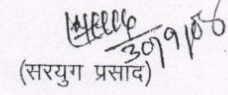 30/9/08
(सरयुग प्रसाद)